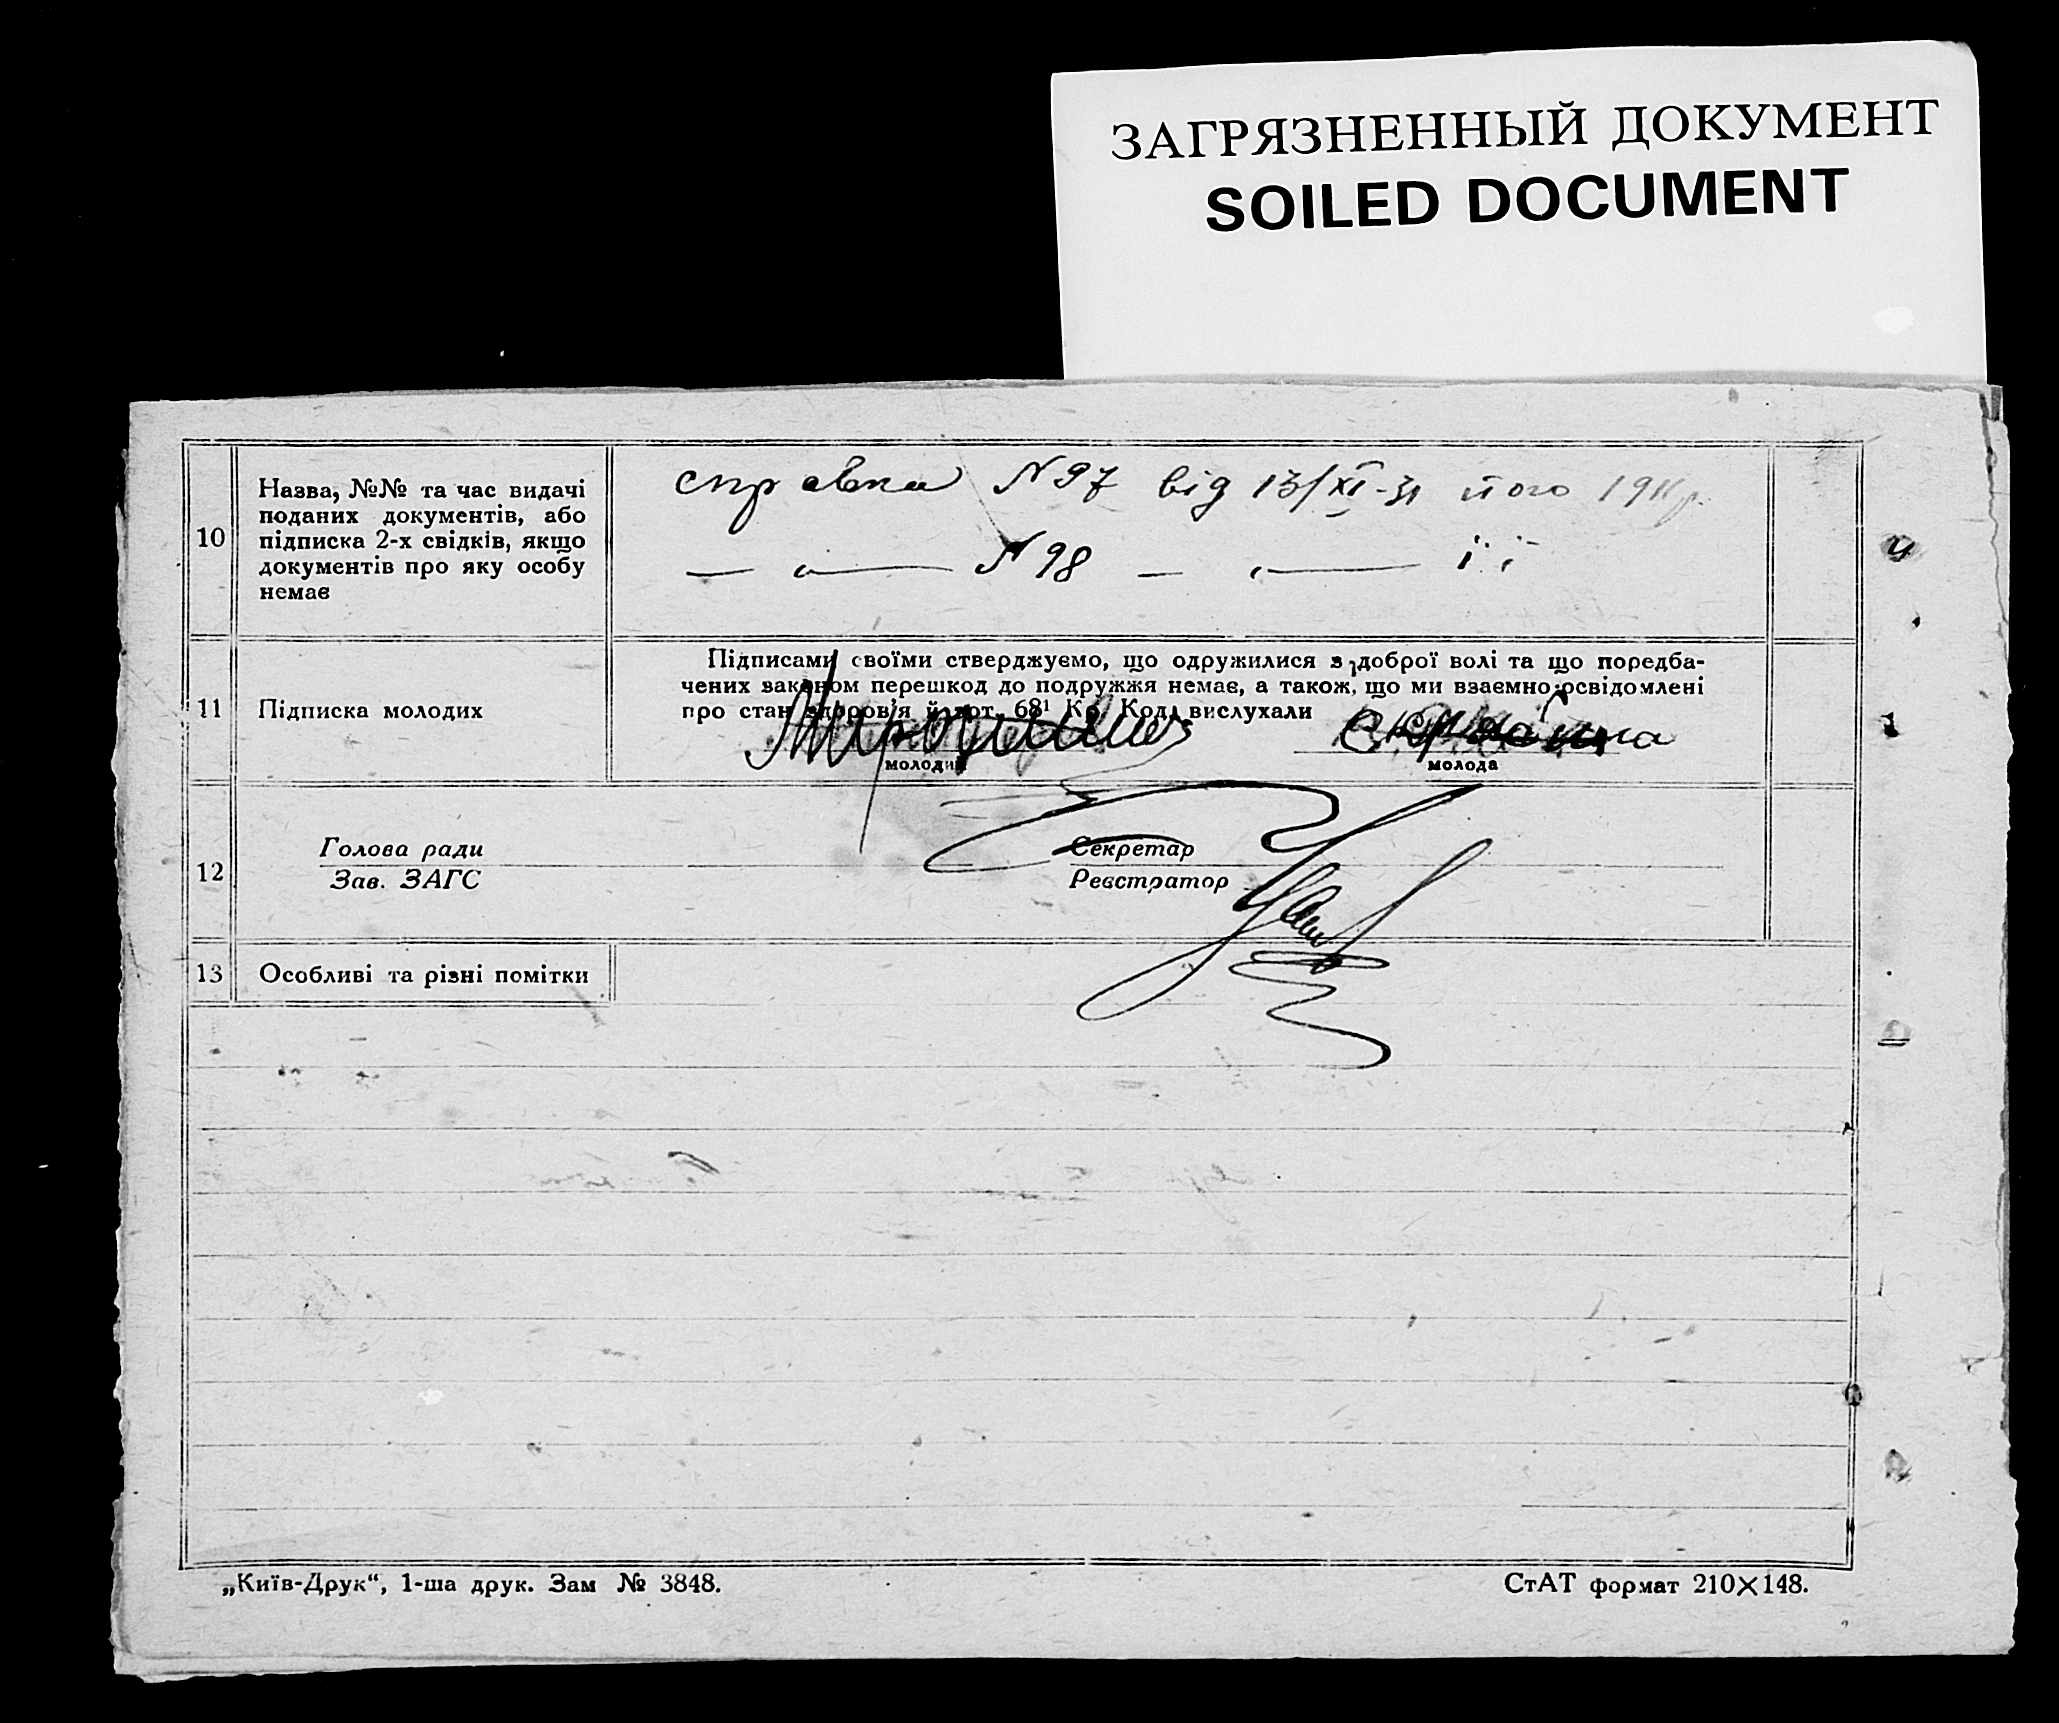 ЗАГРЯЗНЕННЫЙ ДОКУМЕНТ
SOILED DOCUMENT
10
Назва, №№ та час видачі
поданих документів, або
підписка 2-х свідків, якщо
документів про яку особу
немає
справка N 97 від 13/XI-31 його 1911р.
— „ — N 98 — „ — її
11
Підписка молодих
Підписами своїми стверджуємо, що одружилися з доброї волі та що поредба-
чених законом перешкод до подружжя немає, а також, що ми взаємно освідомлені
про стан здоров'я й арт. 68¹ Кр. Код. вислухали
молодий
молода
12
Голова ради
Зав. ЗАГС
Секретар
Реєстратор
13
Особливі та різні помітки
„Київ-Друк“, 1-ша друк. Зам № 3848.
СтАТ формат 210×148.